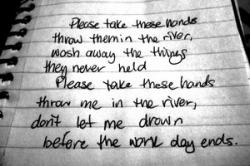 Please take these hands
throw them in the river,
wash away the things
they never held
Please take these hands
throw me in the river,
don't let me drown
before the work day ends.